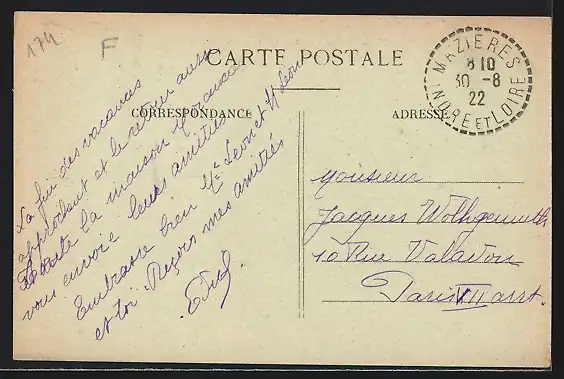 174
F
CARTE POSTALE
MAZIERES
8 10
30 -8
22
INDRE ET LOIRE
CORRESPONDANCE
ADRESSE
La fin des vacances
approchent et le retour aussi
Toute la maison
vous envoie leurs amitiés
Embrasse bien Mme Leon et Mr Leon
et toi. Reçois mes amitiés
Monsieur
Jacques Wohlgemuth
10 Rue Valadon
Paris VII arrt.